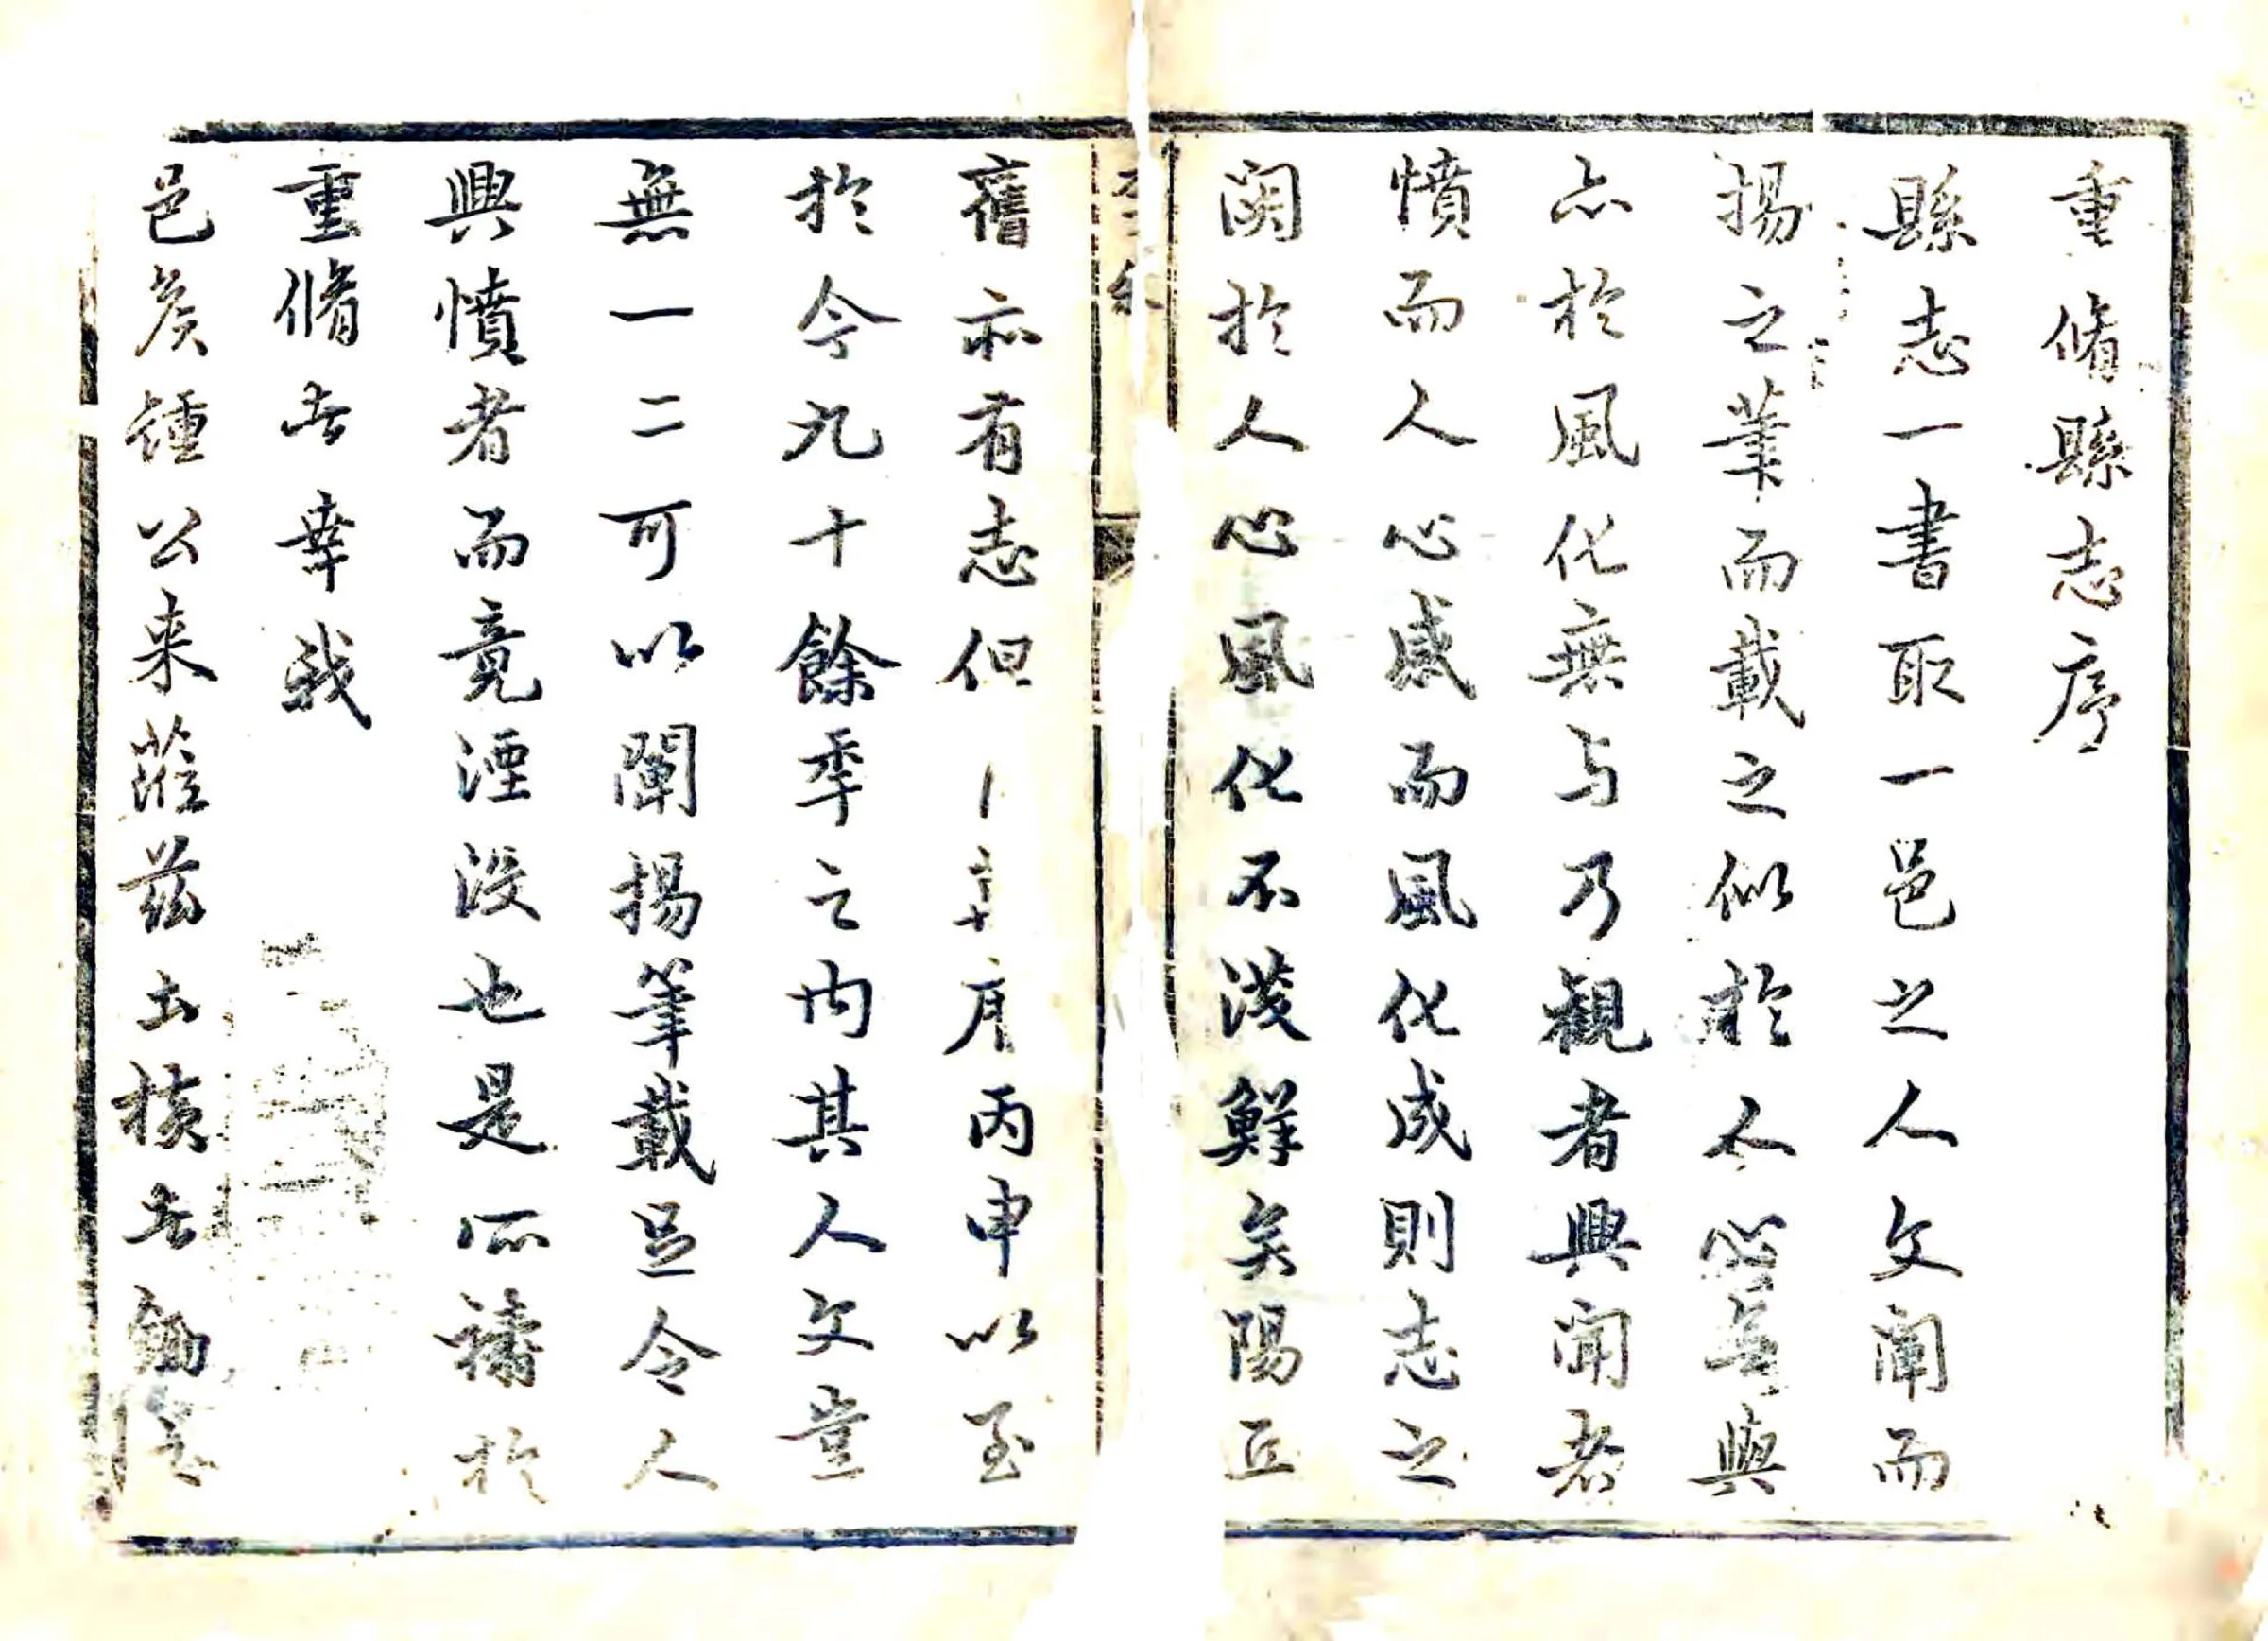 重脩縣志序
縣志一書取一邑之人文闡而
揚之筆而載之似於人心無與
亦於風化無与乃觀者興聞者
憤而人心感而風化成則志之
関於人心風化不淺鮮矣陽丘
舊亦有志但 丙申以至
於今九十餘季之内其人文豈
無一二可以闡揚筆載足令人
興憤者而竟湮没也是所禱於
重脩者幸哉
邑矦鍾公来蒞茲土横者鋤